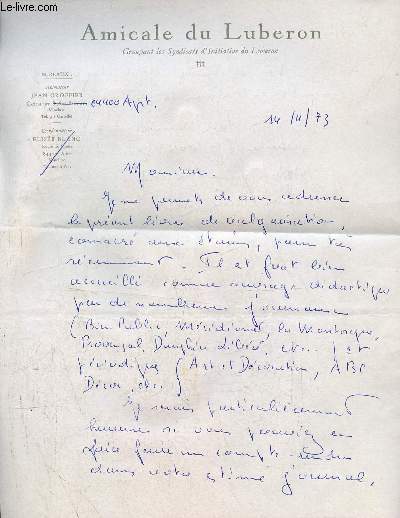 Le-livre.com
Amicale du Luberon
Groupant les Syndicats d'Initiative du Luberon
BUREAUX :
84400 Apt.
14/11/73
Monsieur.
Je me permets de vous adresser
le présent livre de vulgarisation,
consacré aux étains, paru très
récemment. Il est fort bien
accueilli comme ouvrage didactique
par de nombreux journaux
(Bien Public, Méridional, la Montagne,
Provençal, Dauphiné Libéré, etc... ) et
périodiques (Art et Décoration, ABC
Décor, etc.)
Je serais particulièrement
heureux si vous pouviez en
faire faire un compte-rendu
dans votre estimé journal.